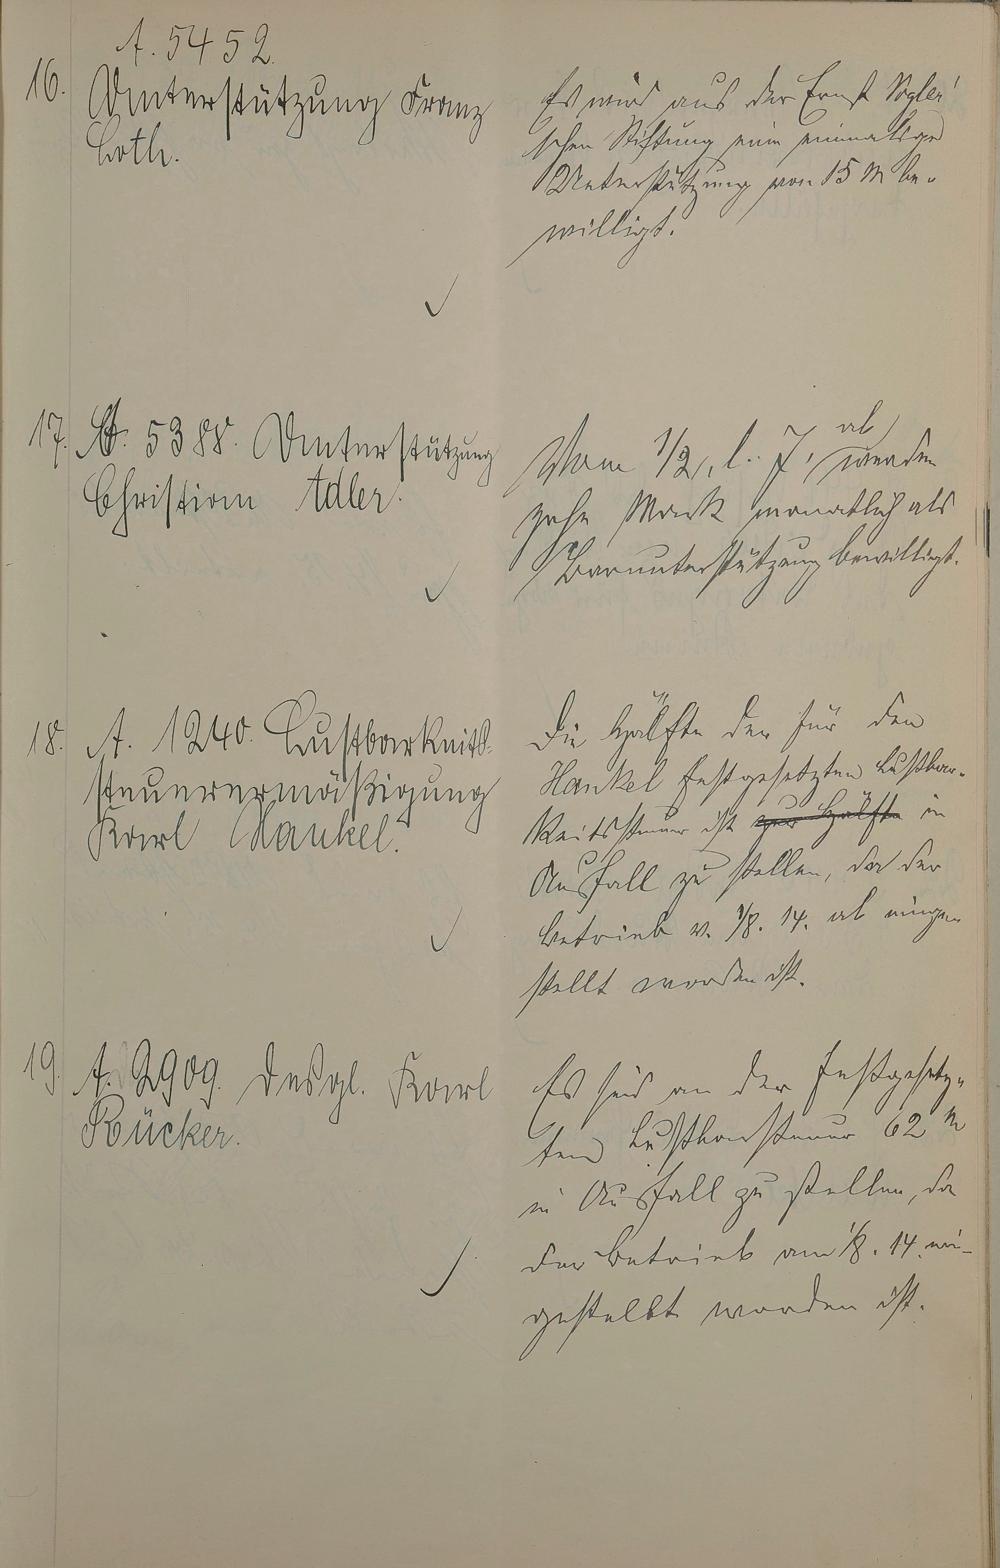 A. 5452
16. Unterstützung Franz
Loth.
Es wird aus der Ernst Vogler'
schen Stiftung eine einmalige
Unterstützung von 15 M be-
willigt.
17. A. 5388. Unterstützung
Christian Adler.
Vom 1/2. l. J. ab werden
zehn Mark monatlich als
Barunterstützung bewilligt.
18. A. 1240. Lustbarkeits-
steuerermäßigung
Karl Hankel.
Die Hälfte der für den
Hankel festgesetzten Lustbar-
keitssteuer ist zur Hälfte in
Ausfall zu stellen, da der
Betrieb v. 1/8. 14. ab einge-
stellt worden ist.
19. A. 2909. Desgl. Karl
Rücker.
Es sind an der festgesetz-
ten Lustbarsteuer 62 M
in Ausfall zu stellen, da
der Betrieb am 1/8. 14. ein-
gestellt worden ist.